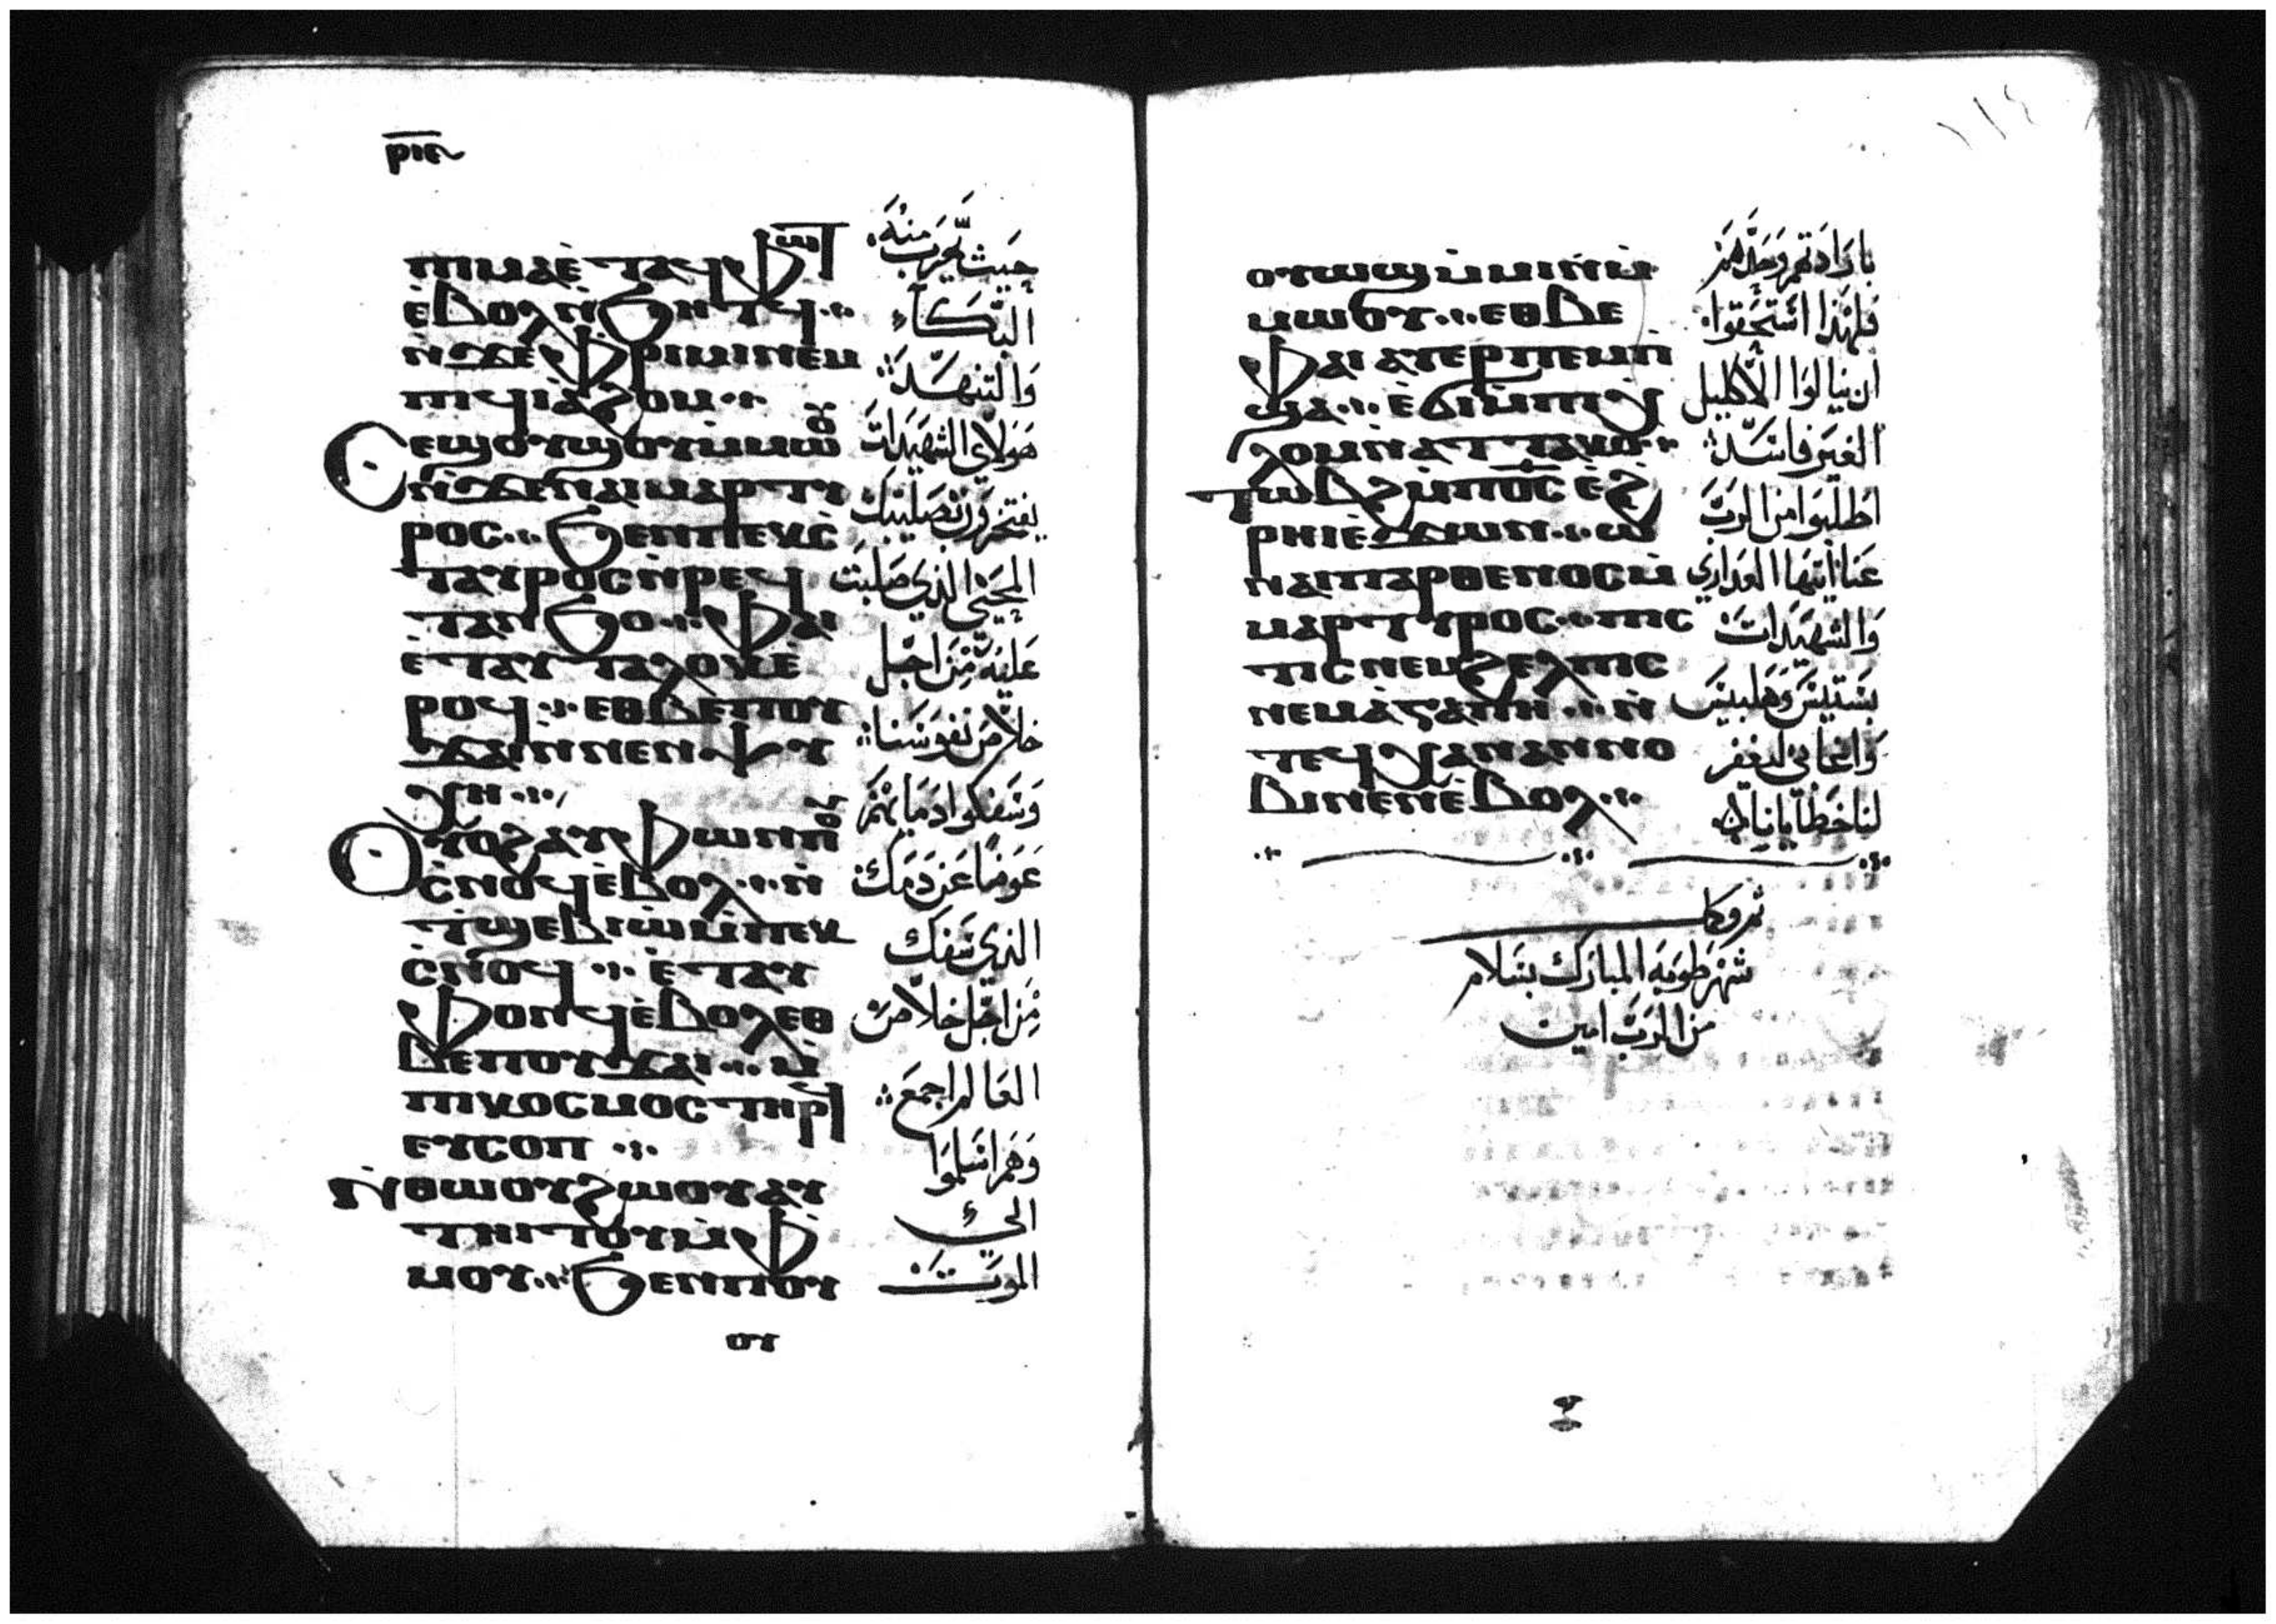 ⲣⲓⲉ
ⲡⲓⲙⲁ ⲉ̀ⲧⲁϥⲫⲱⲧ
ⲉ̀ⲃⲟⲗ ⲛ̀ϧⲏⲧϥ
ⲛ̀ϫⲉ ⲫⲣⲓⲙⲓ ⲛⲉⲙ
ⲡⲓϥⲓⲁ̀ϩⲟⲙ
ⲥⲉϣⲟⲩϣⲟⲩ ⲙ̀ⲙⲱⲟⲩ
ⲛ̀ϫⲉ ⲛⲁⲓⲙⲁⲣⲧⲩ
ⲣⲟⲥ ϧⲉⲛ ⲡⲉⲕⲥ̀
ⲧⲁⲩⲣⲟⲥ ⲛ̀ⲣⲉϥ
ⲧⲁⲛϧⲟ ⲫⲁⲓ
ⲉ̀ⲧⲁⲩⲧⲁⲗⲟⲕ ⲉ̀
ⲣⲟϥ ⲉⲑⲃⲉ ⲡⲟⲩ
ϫⲁⲓ ⲛ̀ⲛⲉⲛⲯⲩ
ⲭⲏ
ⲟⲩⲟϩ ⲁⲩⲫⲱⲛ ⲡⲟⲩ
ⲥ̀ⲛⲟϥ ⲉ̀ⲃⲟⲗ ⲛ̀
ⲧ̀ϣⲉⲃⲓⲱ̀ ⲙ̀ⲡⲉⲕ
ⲥ̀ⲛⲟϥ ⲉ̀ⲧⲁⲩ
ⲫⲟⲛϥ ⲉ̀ⲃⲟⲗ ⲉⲑ
ⲃⲉ ⲡⲟⲩϫⲁⲓ ⲙ̀
ⲡⲓⲕⲟⲥⲙⲟⲥ ⲧⲏⲣϥ
ⲉⲩⲥⲟⲡ
ⲛ̀ⲑⲱⲟⲩ ϩⲱⲟⲩ ⲁⲩ
ⲧⲏⲓⲧⲟⲩ ⲙ̀ⲫ̀
ⲙⲟⲩ ϧⲉⲛ ⲡⲟⲩ
ⲟⲩ
حيث هرب منه
البكاء
والتنهد
هولاي الشهيدات
يفتخرون بصليبك
المحيي الذي صلبت
عليه من اجل
خلاص نفوسنا
وسفكوا دمايهم
عوضا عن دمك
الذي سفك
من اجل خلاص
العالم اجمع
وهم اسلموا
الى
الموت
١١٤
ⲟⲩⲱϣ ⲙ̀ⲙⲓⲛ ⲙ̀
ⲙⲱⲟⲩ ⲉⲑⲃⲉ
ⲫⲁⲓ ⲁⲩⲉⲣⲡⲉⲙⲡ̀
ϣⲁ ⲉ̀ϭⲓ ⲙ̀ⲡⲓⲭ̀
ⲗⲟⲙ ⲛ̀ⲁⲧⲧⲁⲕⲟ
ⲧⲱⲃϩ ⲙ̀ⲡⲟⲥ ⲉ̀ϩ̀
ⲣⲏⲓ ⲉ̀ϫⲱⲛ ⲱ
ⲛⲁⲓⲡⲁⲣⲑⲉⲛⲟⲥ ⲙ̀
ⲙⲁⲣⲧⲩⲣⲟⲥ ⲡⲓⲥ
ⲧⲓⲥ ⲛⲉⲙ ϩⲉⲗⲡⲓⲥ
ⲛⲉⲙ ⲁ̀ⲅⲁⲡⲏ ⲛ̀
ⲧⲉϥⲭⲁ ⲛⲉⲛⲛⲟ
ⲃⲓ ⲛⲉⲛ ⲉ̀ⲃⲟⲗ
بارادتهم وحدهم
فلهذا استحقوا
ان ينالوا الاكليل
الغير فاسد
اطلبوا من الرب
عنا ايتها العداري
والشهيدات
بستيس وهلبيس
واغابي ليغفر
لنا خطايانا
ثم وكمل
شهر طوبه المبارك بسلام
من الرب امين